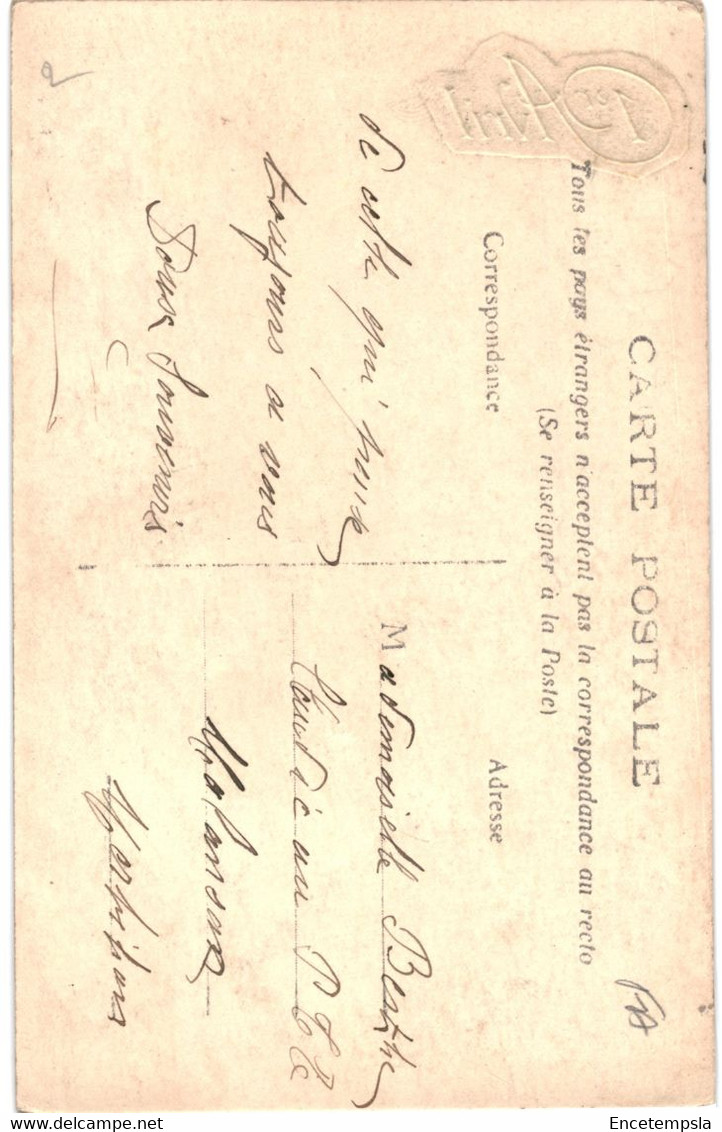 1er Avril
CARTE POSTALE
Tous les pays étrangers n'acceptent pas la correspondance au recto
(Se renseigner à la Poste)
Correspondance
de celle qui pense
toujours a vous
Doux Souvenirs
Adresse
Mademoiselle Berthe
au P T T
Malansac
Morbihan
Encetempsla
www.delcampe.net